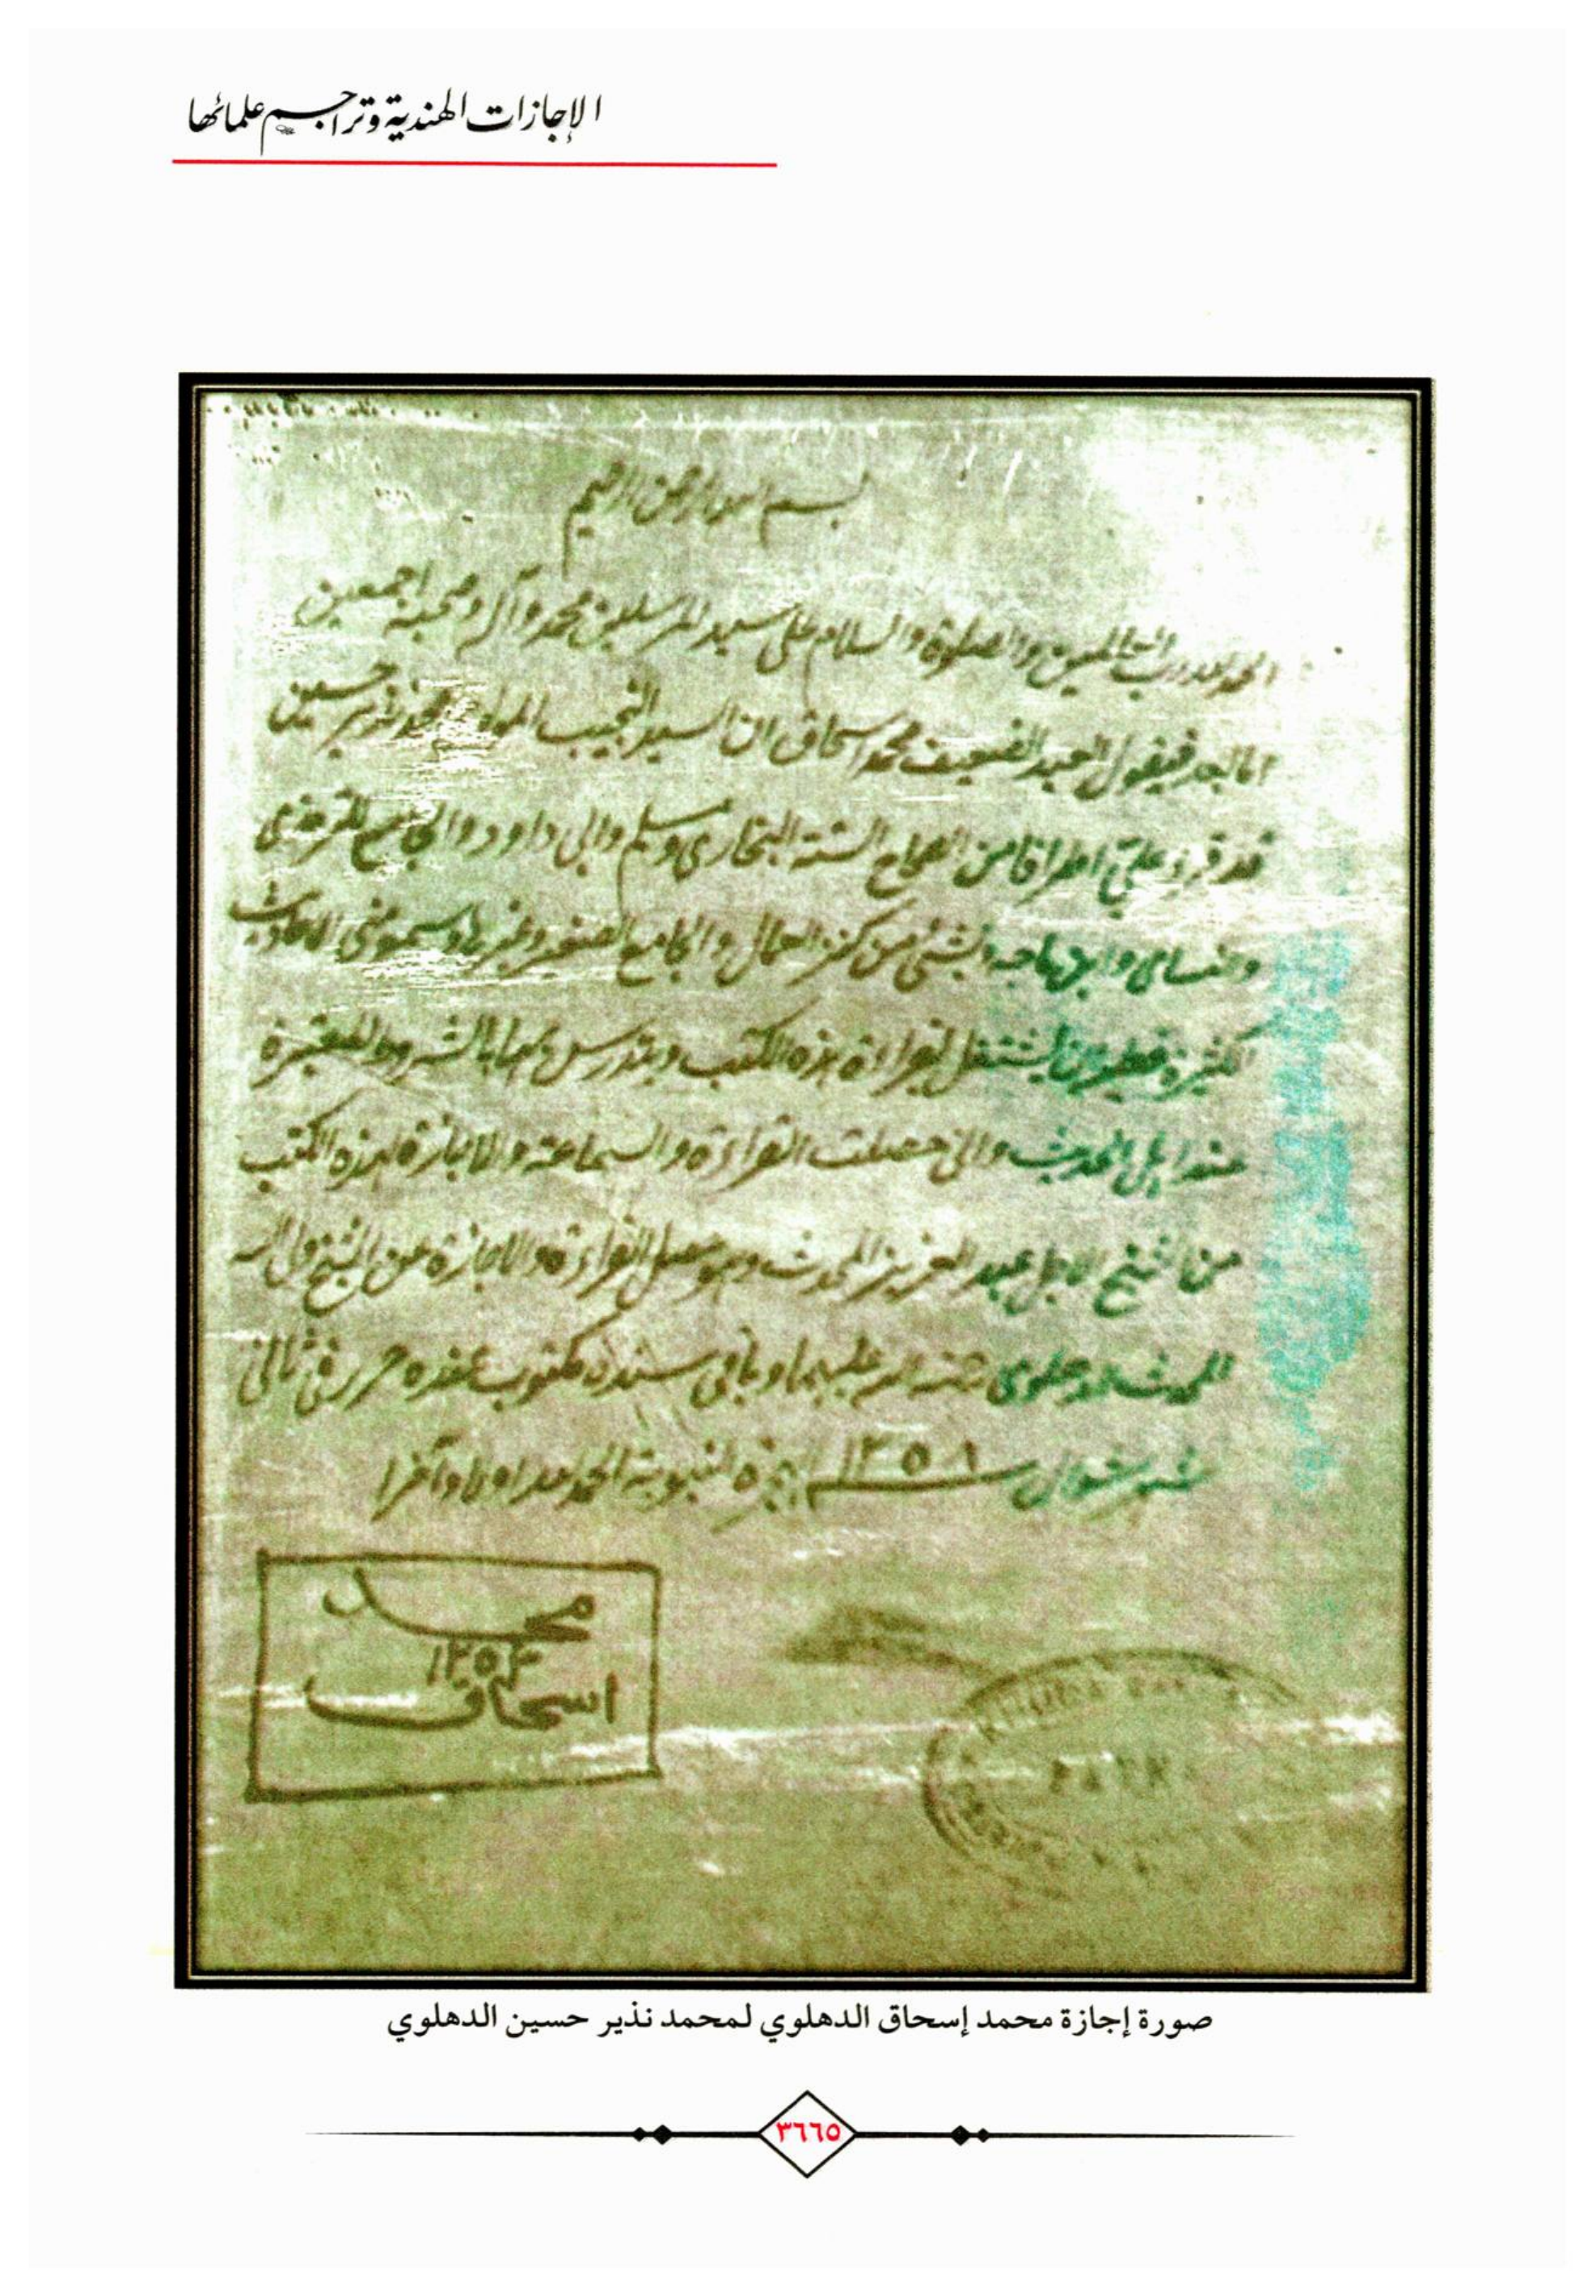 الإجازات الهندية وتراجم علمائها
بسم الله الرحمن الرحيم
الحمد لله رب العالمين والصلوة والسلام على سيد المرسلين محمد وآله وصحبه اجمعين
اما بعد فيقول العبد الضعيف محمد اسحاق ان السيد النجيب المولوي محمد نذير حسين
قد قرء علي اطرافا من الصحاح الستة البخاري ومسلم وابي داود والجامع الترمذي
والنسائ وابن ماجه وشئ من كنز العمال والجامع الصغير وغيرها وسمع مني الاحاديث
الكثيرة فعليه ان يشتغل بقراءة هذه الكتب وبتدريس بالشروط المعتبرة
عند اهل الحديث واني حصلت القراءة والسماعة والاجازة لهذه الكتب
من الشيخ الاجل عبد العزيز المحدث وهو حصل القراءة والاجازة عن الشيخ ولي الله
المحدث الدهلوي رحمة الله عليهما وباقي سنده مكتوب عنده حرر في ثاني
شهر شوال سنه ١٢٥٨ الهجرة النبوية الحمد لله اولا وآخرا
محمد
١٢٥٤
اسحاق
صورة إجازة محمد إسحاق الدهلوي لمحمد نذير حسين الدهلوي
٣٦٦٥